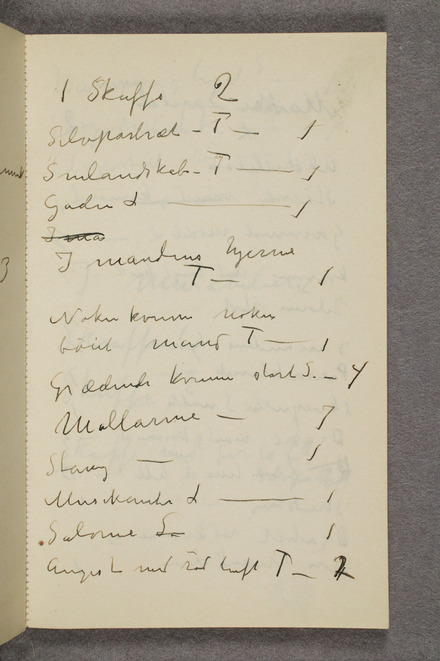 1 Skuffe 2
Selvportræt – T – 1
Smlandskab – T – 1
Gaden L – 1
I mandens hjerne
T – 1
Nøken kvinne nøken
bøiet mand T – 1
Grædende kvinne stort S. – 4
Mallarme – 7
Stang – 1
Musikanter L – 1
Salome L – 1
Angest med rød luft T – 2